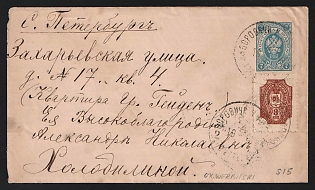 С. Петербургъ.
Захарьевская улица.
д. № 17. кв. 4
(Квартира Гр. Гейден
Ея Высокоблагородію
Александрѣ Николаевнѣ
Холодилиной.
515